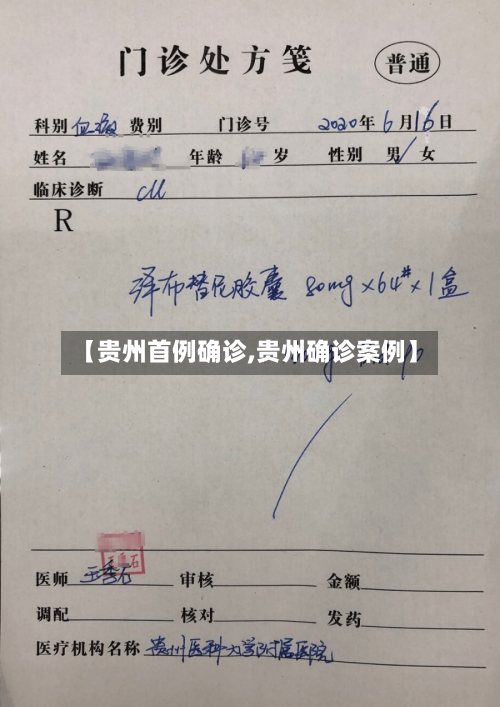 门诊处方笺 普通
科别 血液 费别 门诊号 2020年6月16日
姓名 年龄 岁 性别 男✓ 女
临床诊断
R
泽布替尼胶囊 80mg×64#×1盒
【贵州首例确诊,贵州确诊案例】
医师 王季石 审核 金额
王季石
调配 核对 发药
医疗机构名称 贵州医科大学附属医院